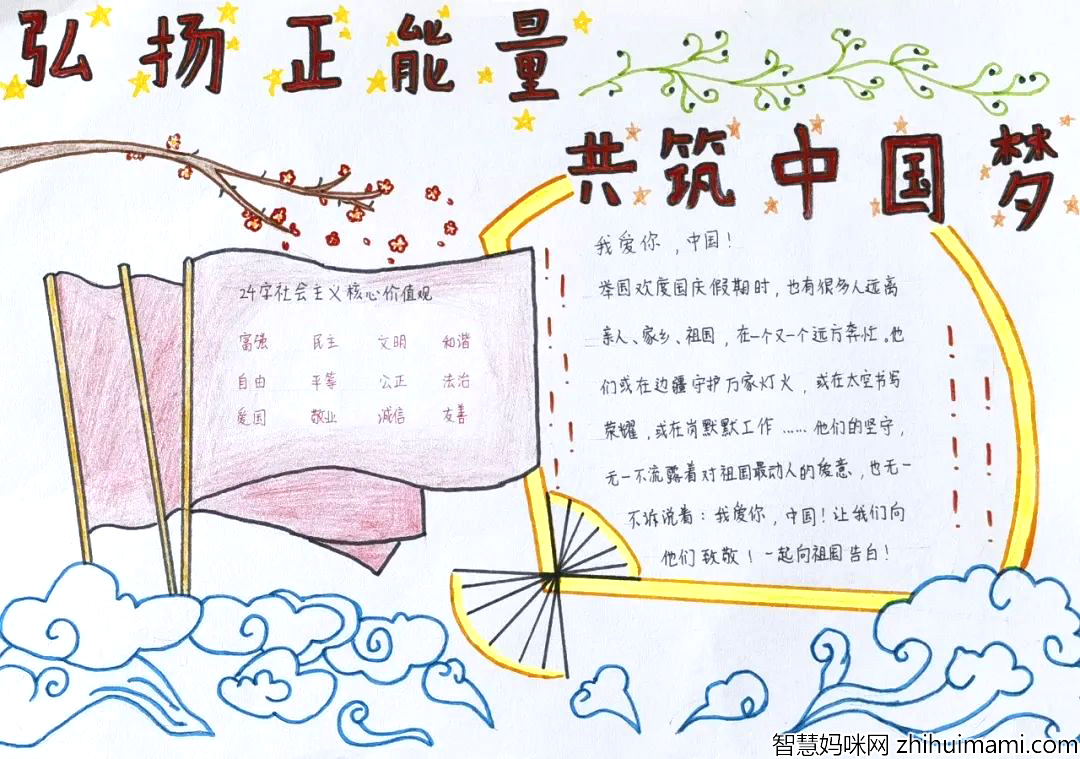 弘扬正能量
共筑中国梦
24字社会主义核心价值观
富强 民主 文明 和谐
自由 平等 公正 法治
爱国 敬业 诚信 友善
我爱你，中国！
举国欢度国庆假期时，也有很多人远离
亲人、家乡、祖国，在一个又一个远方奔忙。他
们或在边疆守护万家灯火，或在太空书写
荣耀，或在岗默默工作……他们的坚守，
无一不流露着对祖国最动人的爱意，也无一
不诉说着：我爱你，中国！让我们向
他们致敬！一起向祖国告白！
智慧妈咪网 zhihuimami.com